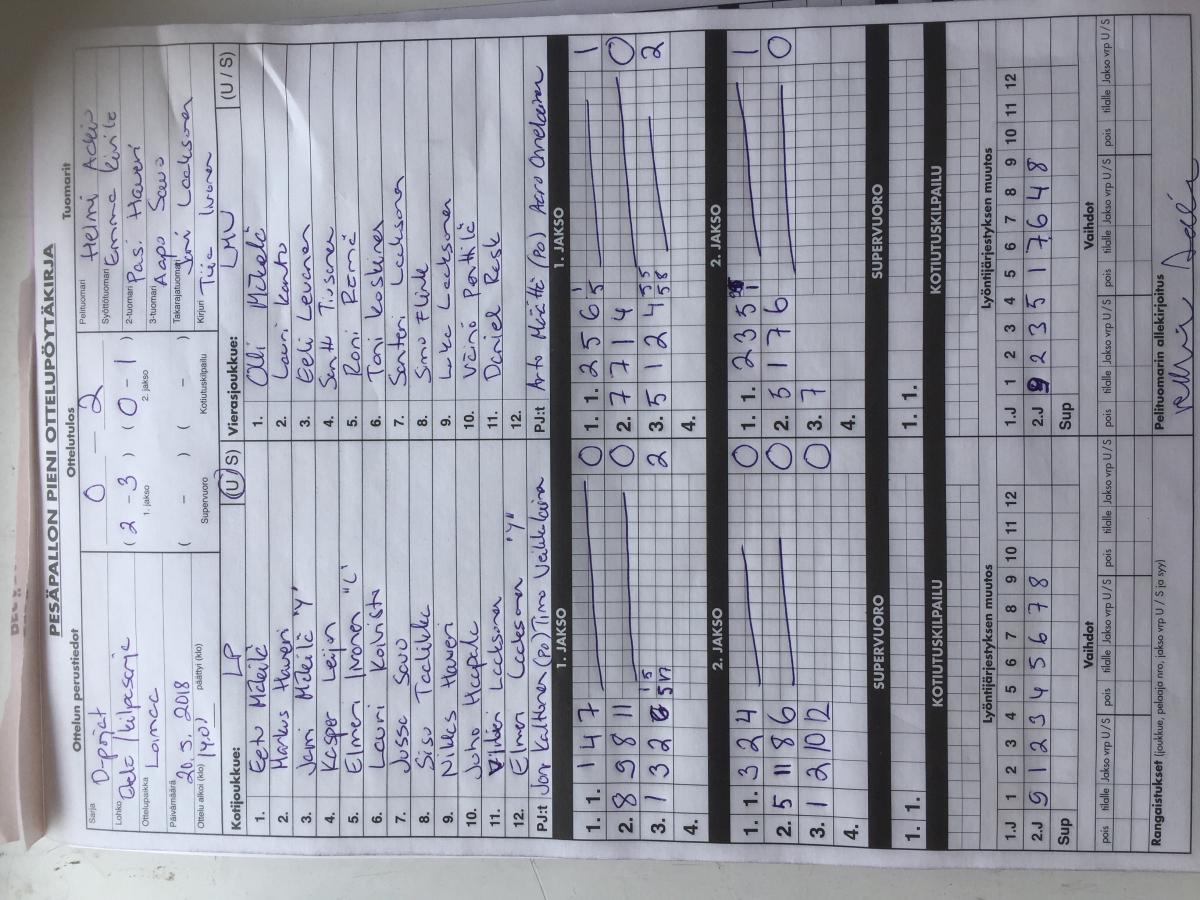 PESÄPALLON PIENI OTTELUPÖYTÄKIRJA
Ottelun perustiedot
Ottelutulos
Tuomarit
Sarja D-pojat
Lohko Etelä kilpasarja
Ottelupaikka Loimaa
Päivämäärä 20.5.2018
Ottelu alkoi (klo) 1401 päättyi (klo)
0 — 2
(2 - 3) (0 - 1)
1. jakso 2. jakso
( - ) ( - )
Supervuoro Kotiutuskilpailu
Pelituomari Helmi Aakio
Syöttötuomari Emma
2-tuomari Pasi Haveri
3-tuomari Aapo Savo
Takarajatuomari Joni Laaksonen
Kirjuri Tiia
Kotijoukkue: LP (U / S)
1. Eetu Mäkelä
2. Markus Haveri
3. Jami Mäkelä "Y"
4. Kasper Leijon
5. Elmeri Ivonen "L"
6. Lauri Koivisto
7. Jusso Savo
8. Sisu Taalikka
9. Niklas Haveri
10. Juho Haapala
11. Laaksonen
12. Elmeri Laaksonen "Y"
PJ:t Jari Kalttonen (Po) Timo Veikkolaina
Vierasjoukkue: LMU (U / S)
1. Olli Mikkelä
2. Lauri Kanto
3. Eeli Levonen
4. Santtu Tiusanen
5. Roni Rämä
6. Toni Koskinen
7. Santeri Laaksonen
8. Simo Flink
9. Luka Laaksonen
10. Väinö Porttila
11. Daniel Rask
12.
PJ:t Arto Määttä (Po) Aaro Onnelainen
1. JAKSO
1. 1. 1 4 7 0
2. 8 9 8 11 0
3. 1 3 2 2
4.
2. JAKSO
1. 1. 3 2 4 0
2. 5 11 8 6 0
3. 1 2 10 12 0
4.
SUPERVUORO
1. 1.
KOTIUTUSKILPAILU
Lyöntijärjestyksen muutos
1.J 1 2 3 4 5 6 7 8 9 10 11 12
2.J 9 1 2 3 4 5 6 7 8
Sup
Vaihdot
pois tilalle Jakso vrp U / S pois tilalle Jakso vrp U / S pois tilalle Jakso vrp U / S
1. JAKSO
1. 1. 1 2 5 6 5 1 1
2. 7 7 1 4 0
3. 5 1 2 4 55 58 2
4.
2. JAKSO
1. 1. 1 2 3 5 1 1
2. 3 1 7 6 0
3. 7
4.
SUPERVUORO
1. 1.
KOTIUTUSKILPAILU
Lyöntijärjestyksen muutos
1.J 1 2 3 4 5 6 7 8 9 10 11 12
2.J 9 2 3 5 1 7 6 4 8
Sup
Vaihdot
pois tilalle Jakso vrp U / S pois tilalle Jakso vrp U / S pois tilalle Jakso vrp U / S
Rangaistukset (joukkue, pelaaja nro, jakso vrp U / S ja syy)
Pelituomarin allekirjoitus